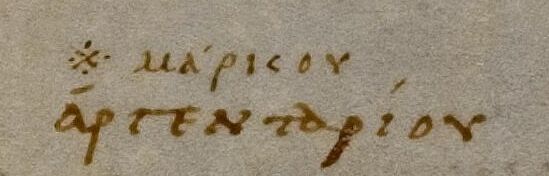 ※ μάρκου
ἀργενταρίου